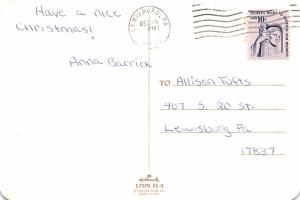 Have a nice
Christmas!
Anna Barrick
LEWISBURG, PA
DEC
PM
10c
TO Allison Tufts
407 S. 20 St.
Lewisburg Pa
17837
Hallmark